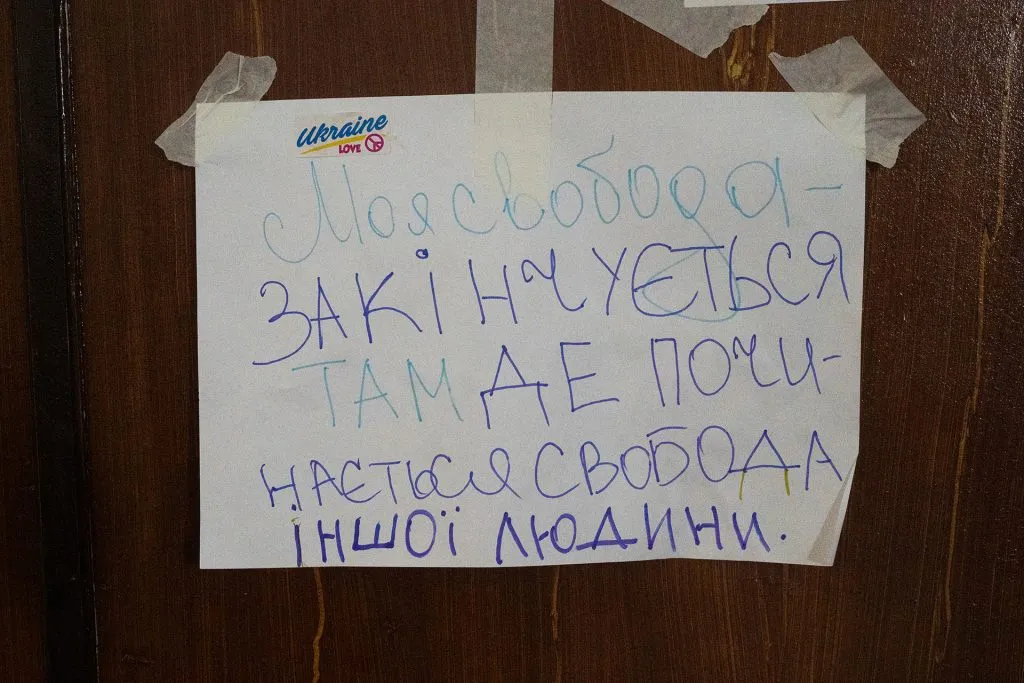 Ukraine
LOVE
Моя свобода -
ЗАКІНЧУЄТЬСЯ
ТАМ ДЕ ПОЧИ-
НАЄТЬСЯ СВОБОДА
ІНШОЇ ЛЮДИНИ.